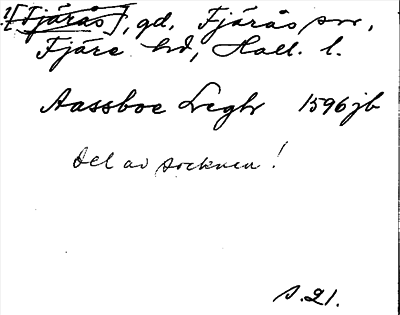 ![Fjärås], gd, Fjärås sn,
Fjäre hd, Hall. l.
Aassboe Leghr 1596 jb
Del av socknen!
s. 21.